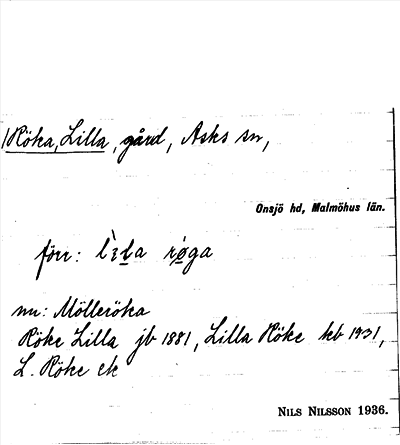 Röka, Lilla, gård, Asks sn,
Onsjö hd, Malmöhus län.
förr: røga
nu: Mölleröka
Röke Lilla jb 1881, Lilla Röke kb 1931,
L. Röke ek
NILS NILSSON 1936.